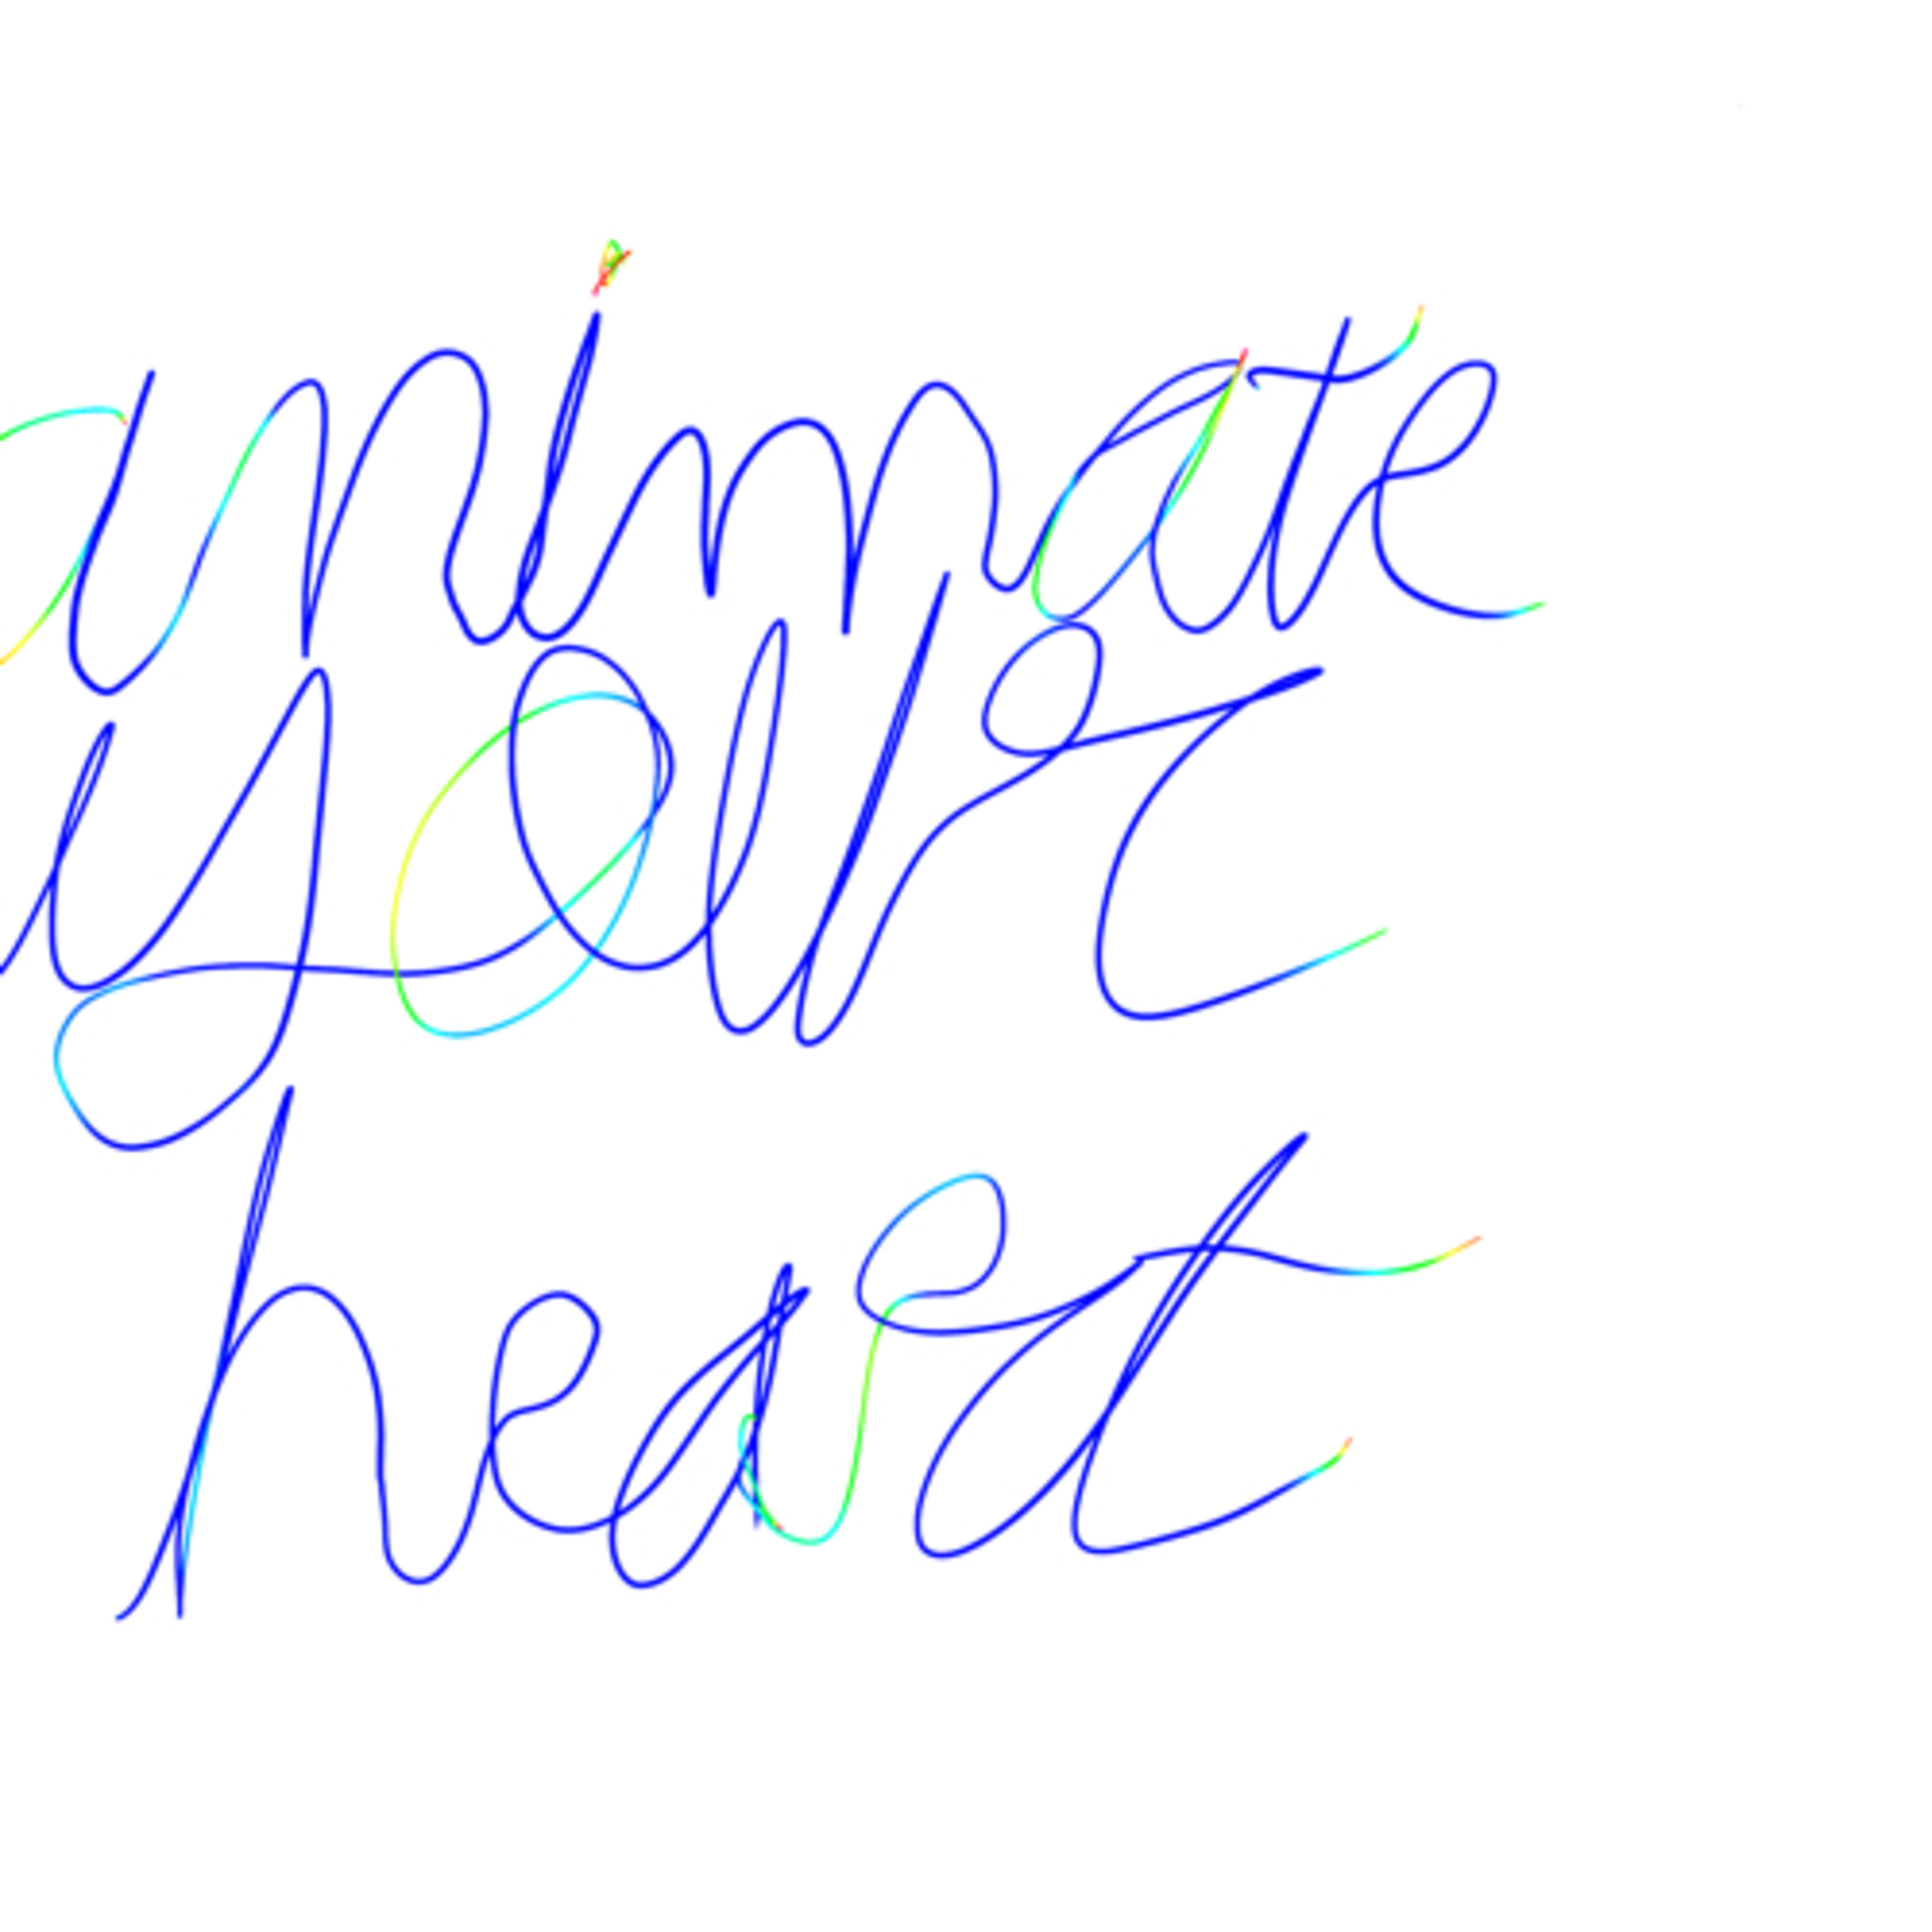 animate
your
heart